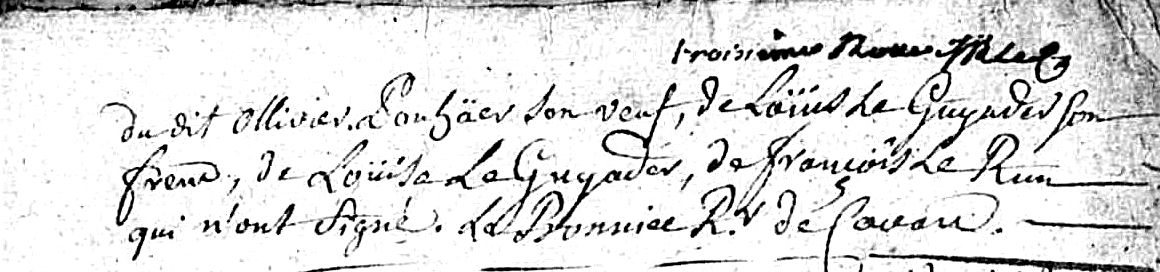 troisième
du dit Ollivier Ponhäer son veuf, de Loüis Le Guyader son
frere, de Loüise Le Guyader, de françois Le Run
qui n'ont signé. Le Bonniec R.r de Cavan.